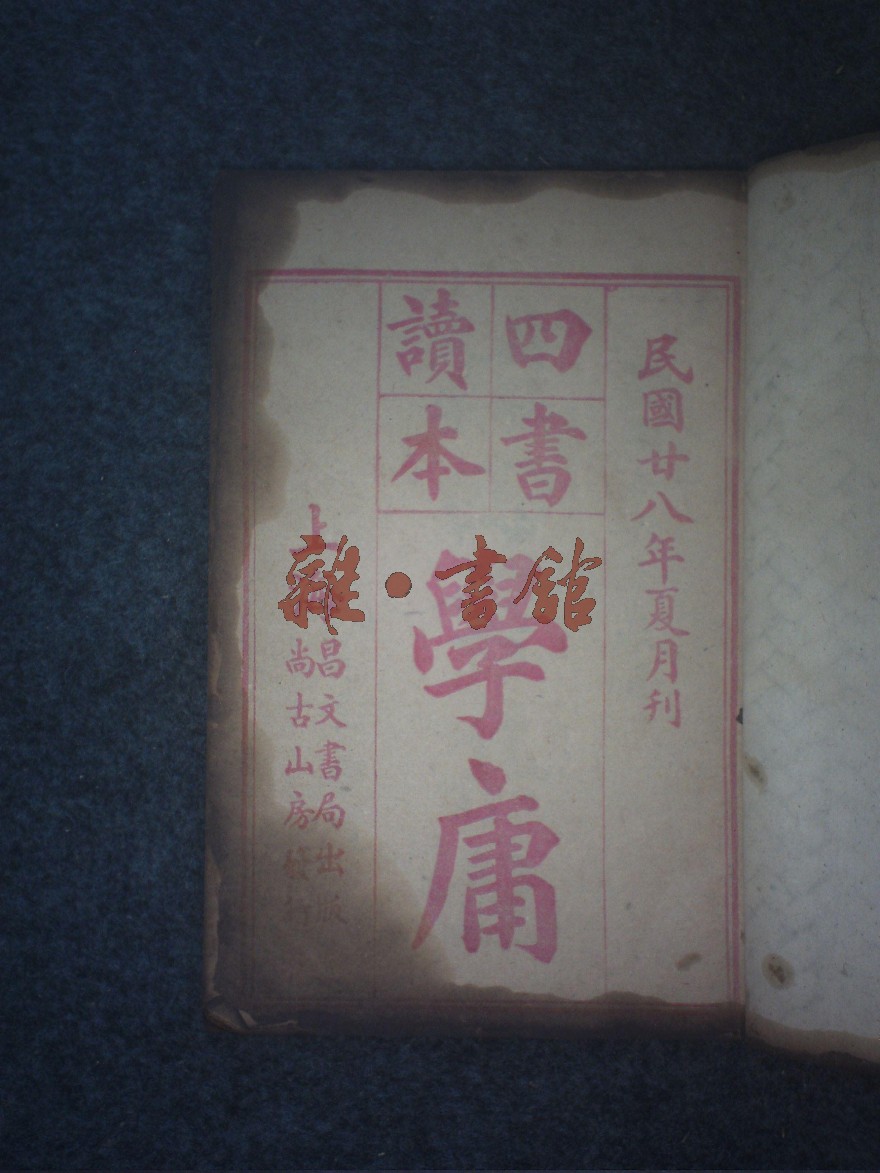 民國廿八年夏月刊
四書
讀本
學庸
上
昌文書局出版
尚古山房發行
雜·書館